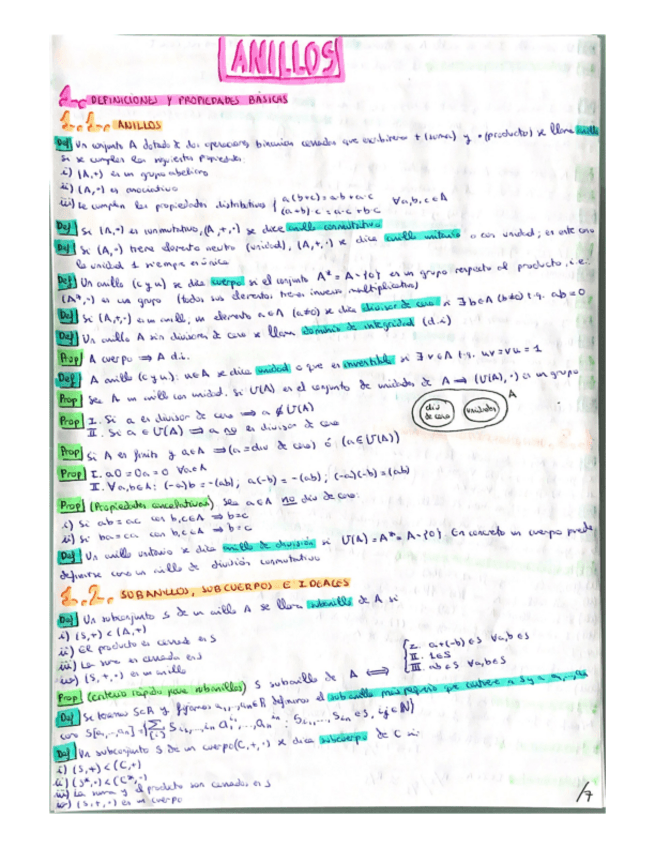 ANILLOS
1.- DEFINICIONES Y PROPIEDADES BÁSICAS
1.1.- ANILLOS
Def Un conjunto A dotado de dos operaciones binarias cerradas que escribiremos + (suma) y · (producto) se llama anillo
si se cumplen las siguientes propiedades:
i) (A,+) es un grupo abeliano
ii) (A,·) es asociativo
iii) Se cumplen las propiedades distributivas { a(b+c)=a·b+a·c
(a+b)·c=a·c+b·c ∀a,b,c∈A
Def Si (A,·) es conmutativo, (A,+,·) se dice anillo conmutativo
Def Si (A,·) tiene elemento neutro (unidad), (A,+,·) se dice anillo unitario o con unidad; en este caso
la unidad 1 siempre es única
Def Un anillo (c y u) se dice cuerpo si el conjunto A* = A-{0} es un grupo respecto al producto, i.e.
(A*,·) es un grupo (todos sus elementos tienen inverso multiplicativo)
Def Si (A,+,·) es un anillo, un elemento a∈A (a≠0) se dice divisor de cero si ∃b∈A (b≠0) t.q. ab=0
Def Un anillo A sin divisores de cero se llama dominio de integridad (d.i)
Prop A cuerpo ⟹ A d.i.
Def A anillo (c y u): u∈A se dice unidad o que es invertible si ∃v∈A t.q. uv=vu=1
Prop Sea A un anillo con unidad. Si U(A) es el conjunto de unidades de A ⟹ (U(A),·) es un grupo
Prop I. Si a es divisor de cero ⟹ a∉U(A)
II. Si a∈U(A) ⟹ a no es divisor de cero
div de cero
unidades
A
Prop Si A es finito y a∈A ⟹ (a=div de cero) ó (a∈U(A))
Prop I. a0=0a=0 ∀a∈A
II. ∀a,b∈A: (-a)b=-(ab); a(-b)=-(ab); (-a)(-b)=(ab)
Prop (Propiedades cancelativas) Sea a∈A no div de cero:
i) Si ab=ac con b,c∈A ⟹ b=c
ii) Si ba=ca con b,c∈A ⟹ b=c
Def Un anillo unitario se dice anillo de división si U(A)=A*=A-{0}. En concreto un cuerpo puede
definirse como un anillo de división conmutativo
1.2.- SUBANILLOS, SUBCUERPOS E IDEALES
Def Un subconjunto S de un anillo A se llama subanillo de A si
i) (S,+)<(A,+)
ii) El producto es cerrado en S
iii) La suma es cerrada en S
iv) (S,+,·) es un anillo
Prop (criterio rápido para subanillos) S subanillo de A ⟺ { I. a+(-b)∈S ∀a,b∈S
II. 1∈S
III. ab∈S ∀a,b∈S
Def Si tomamos S⊂R y fijamos a₁,...,aₙ∈R definimos el subanillo más pequeño que contiene a S y a a₁,...,aₙ
como S[a₁,...,aₙ]
Def Un subconjunto S de un cuerpo (C,+,·) se dice subcuerpo de C si:
i) (S,+)<(C,+)
ii) (S*,·)<(C*,·)
iii) La suma y el producto son cerrados en S
iv) (S,+,·) es un cuerpo
/7